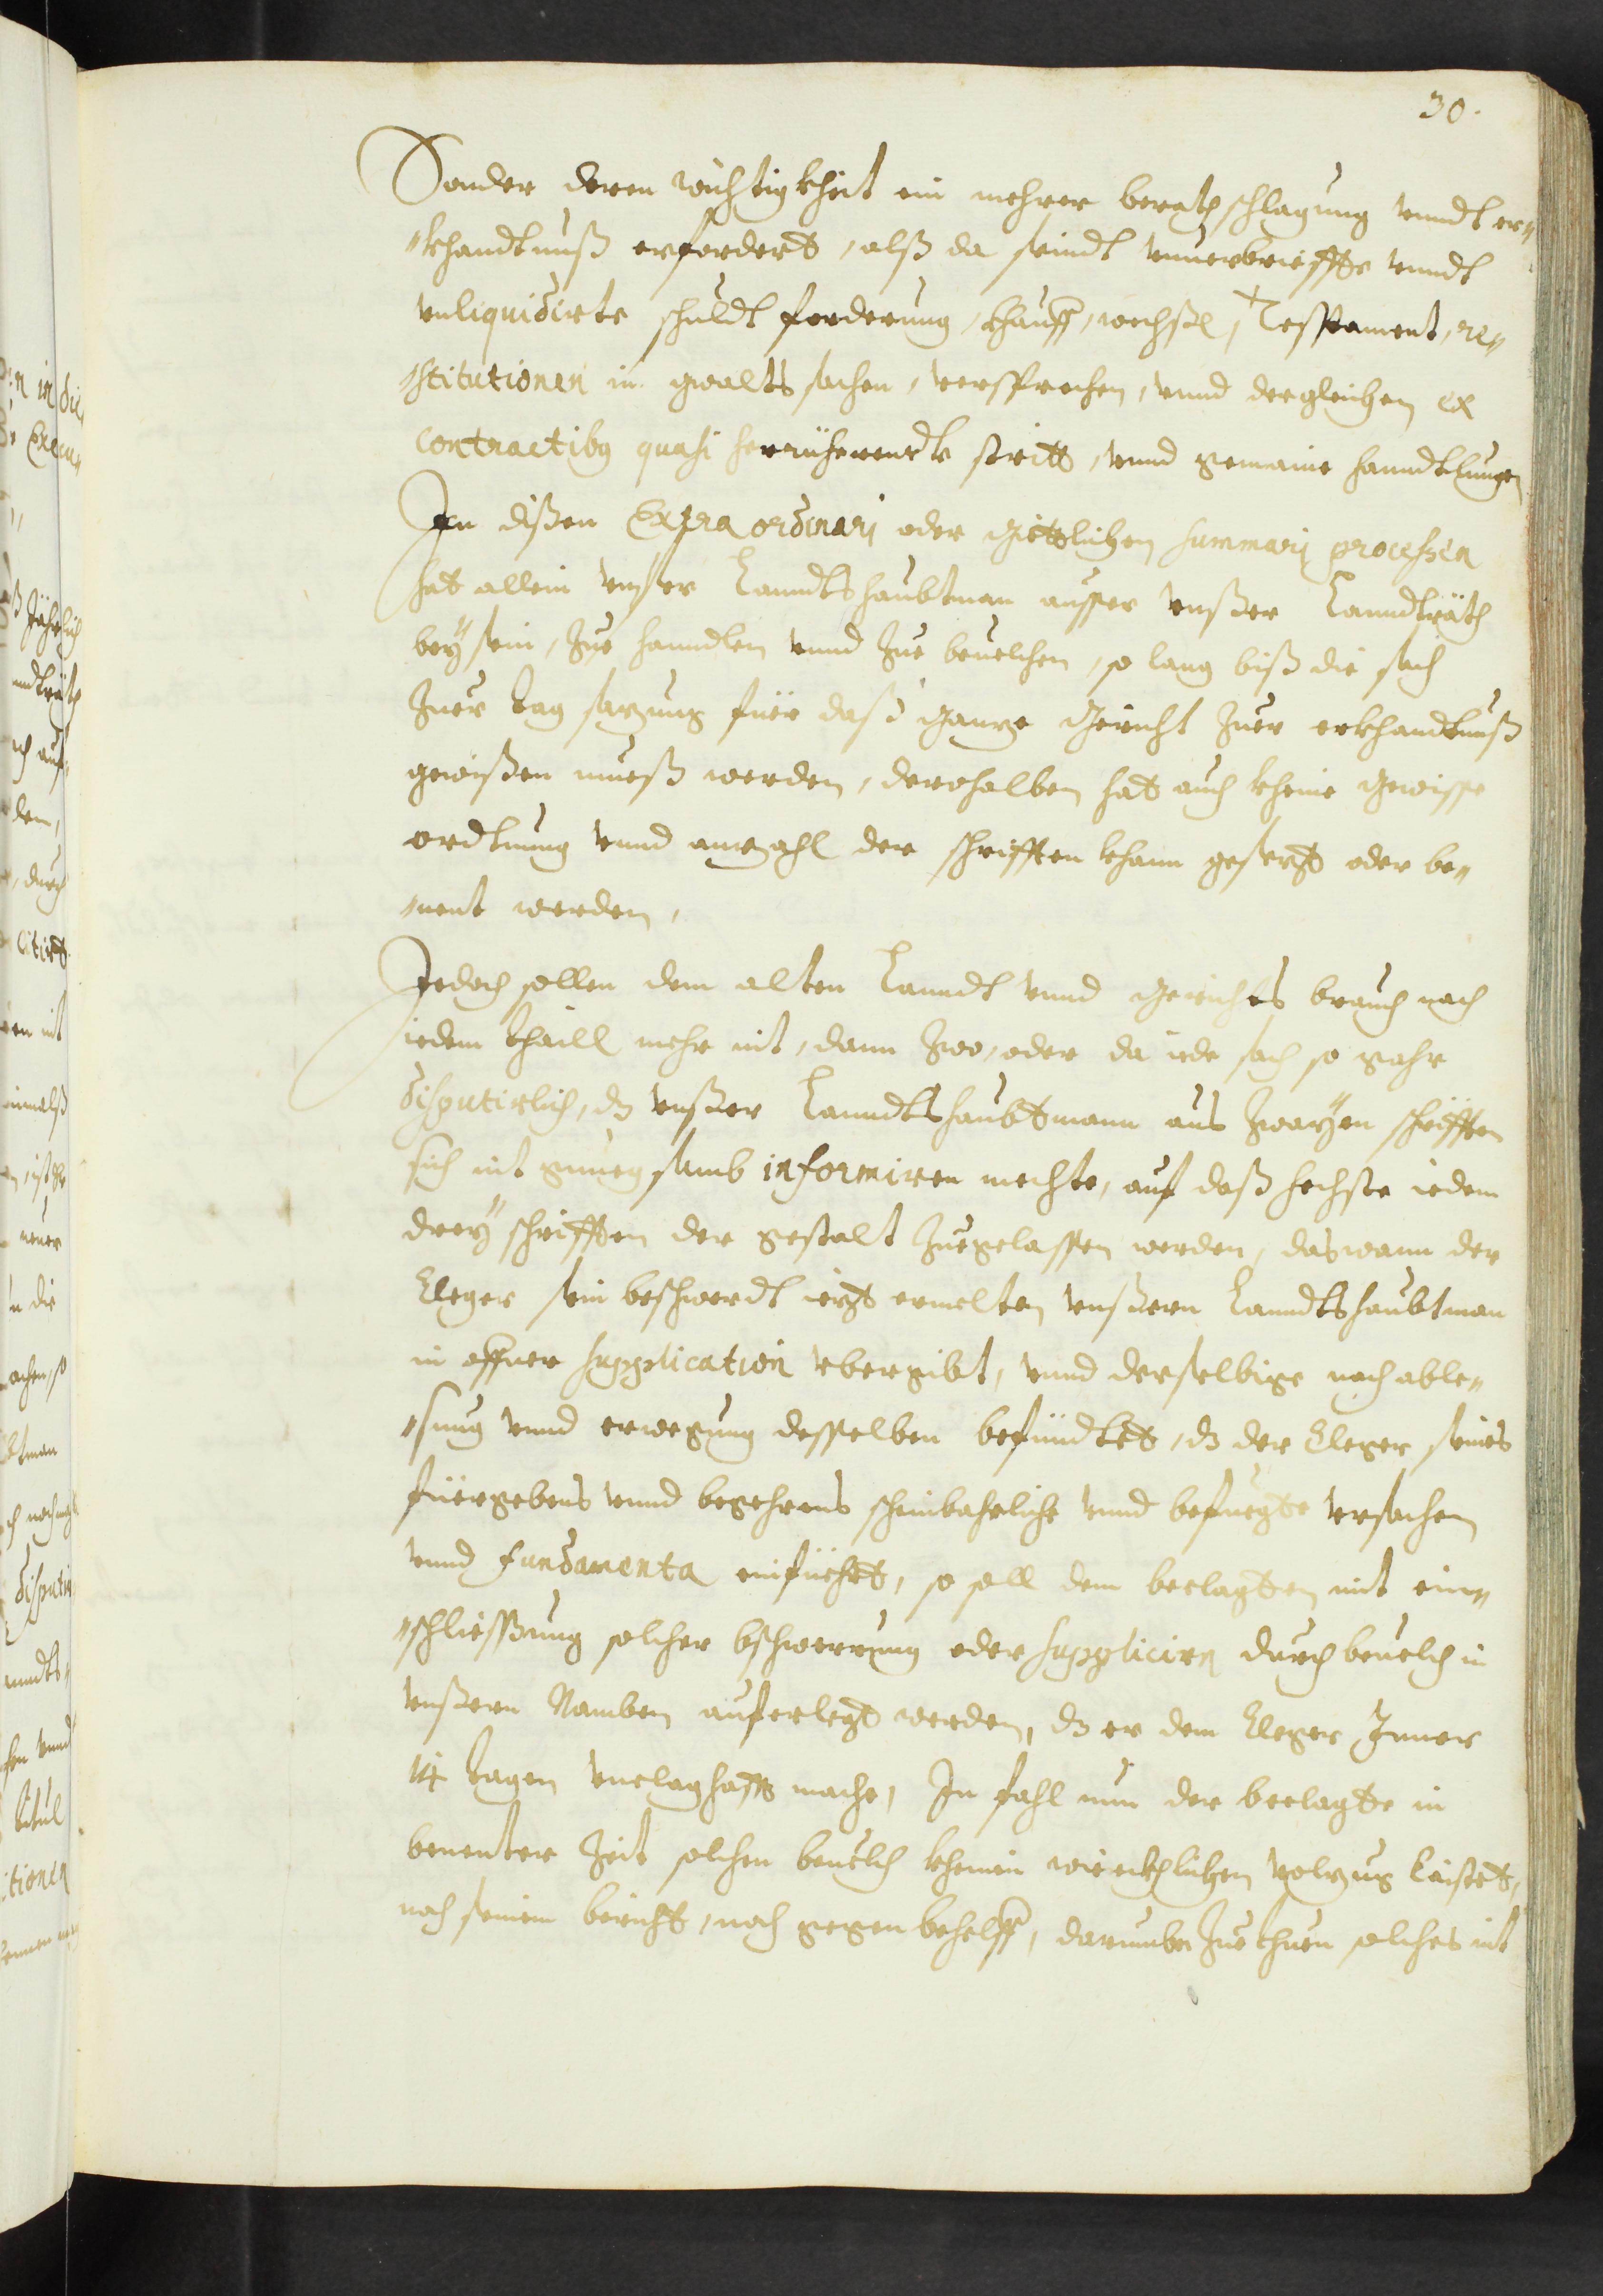 30.
Sonder deren wichtigkheit ein mehrer berathschlagung vnndt er„
„khandtnuß erfordert, alß da seindt vnuerbrieffte vnndt
vnliquidirte schuldt forderung, khauff, wechsl, Testament, re„
„stitutionen in gwalts sachen, versprechen, vnnd dergleichen ex
contractibus quasi herrüherendte stritt, vnnd gemaine hanndtlungen
In dißen Extra ordinarj oder güettlichen summarj processen
hat allein vnßer Lanndtshaubtman ausser vnßer Lanndträth
beysein, Zue hanndlen vnnd Zue beuelchen, so lang biß die sach
Zuer tag sazung füer daß ganze Gericht Zuer erkhandtnuß
gewißen mueß werden, derohalben hat auch kheine gewisse
ordtnung vnnd anzahl der schrifften khann gesezt oder be„
„nent werden,
Jedoch sollen dem alten Lanndt vnnd Gerichts brauch nach
jedem thaill mehr nit, dann Zwo, oder da jede sach so gahr
disputirlich, dz vnßer Lanndtshaubtmann aus Zwayen schrifften
sich nit gnuegsamb informiren mechte, auf daß hechste jedem
drey schrifften der gestalt Zuegelassen werden, das wann der
Cleger sein beschwerdt jezt ermelten vnßern Lanndtshaubtman
in offner supplication vbergibt, vnnd derselbige nach able„
„sung vnnd erwegung desselben befündtet, dz der Cleger seines
füergebens vnnd begehrens scheinbahrliche vnnd befuegte vrsachen
vnnd fundamenta einfüehrt, so soll dem beclagten mit ein„
„schliessung solcher bschwerung oder suppliciren durch beuelch in
vnßern Namben auferlegt werden, dz er dem Cleger Inner
14 tagen vnclaghafft mache, In fahl nun der beclagte in
benenter Zeit solchen beuelch kheinen würckhlichen volzug laistet,
noch seinen bericht, noch gegen behelff, darumben Zuethuen solches nit